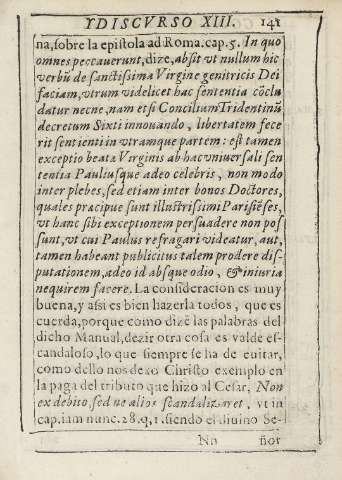 YDISCVRSO XIII. 141
na, sobre la epistola ad Roma. cap. 5. In quo
omnes peccauerunt, dize, absit vt nullum hic
verbũ de sanctissima Virgine genitricis Dei
faciam, vtrum videlicet hac sententia cõclu
datur necne, nam etsi Concilium Tridentinũ
decretum Sixti innouando, libertatem fece
rit sentienti in vtramque partem: est tamen
exceptio beata Virginis ab hac vniuersali sen
tentia Pauliusque adeo celebris, non modo
inter plebes, sed etiam inter bonos Doctores,
quales præcipue sunt illustrissimi Parisiẽses,
vt hanc sibi exceptionem persuadere non pos
sunt, vt cui Paulus refragari videatur, aut,
tamen habeant publicitus talem prodere dis-
putationem, adeo id absque odio, & iniuria
nequirem facere. La consideracion es muy
buena, y assi es bien hazerla todos, que es
cuerda, porque como dizẽ las palabras del
dicho Manual, dezir otra cosa es valde es-
candaloso, lo que siempre se ha de euitar,
como dello nos dexo Christo exemplo en
la paga del tributo que hizo al Cesar, Non
ex debito, sed ne alios scandalizaret, vt in
cap. iam nunc. 28. q, 1. siendo el diuino Se-
Nn ñor